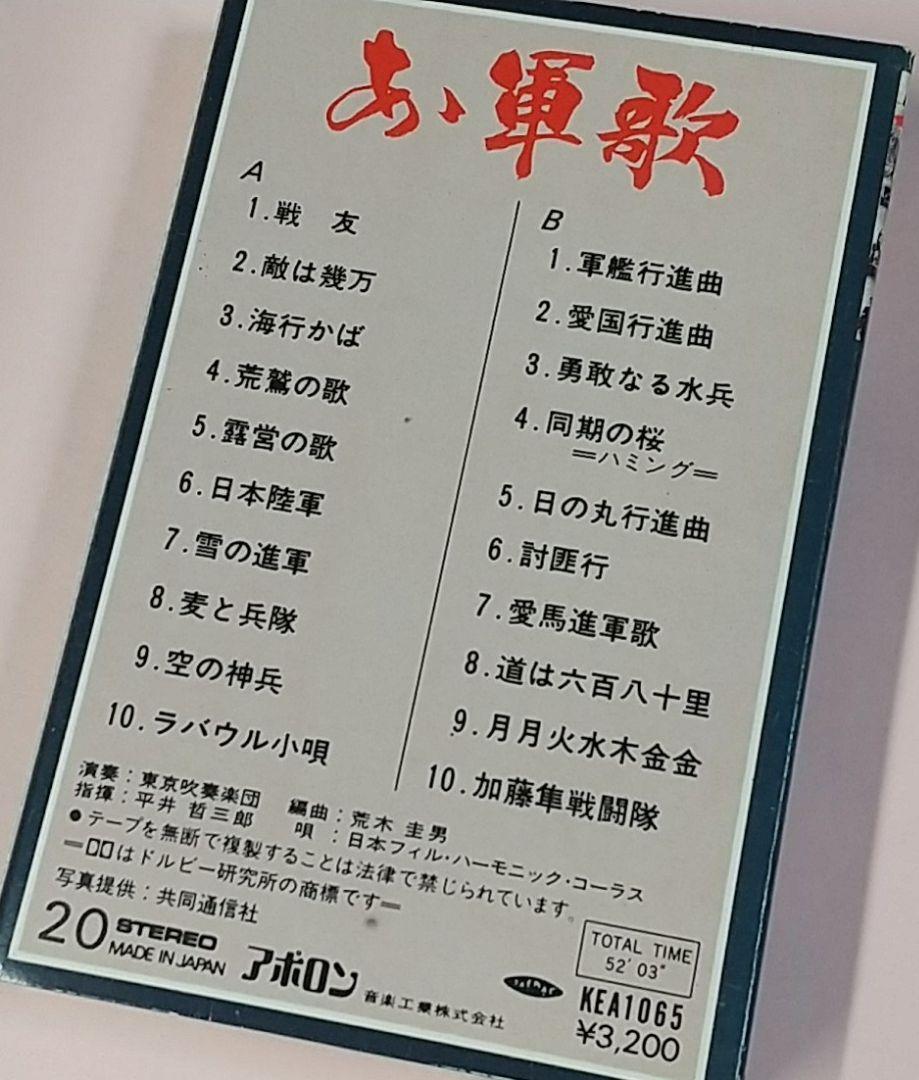 あゝ軍歌
A
1.戦 友
2.敵は幾万
3.海行かば
4.荒鷲の歌
5.露営の歌
6.日本陸軍
7.雪の進軍
8.麦と兵隊
9.空の神兵
10.ラバウル小唄
B
1.軍艦行進曲
2.愛国行進曲
3.勇敢なる水兵
4.同期の桜
=ハミング=
5.日の丸行進曲
6.討匪行
7.愛馬進軍歌
8.道は六百八十里
9.月月火水木金金
10.加藤隼戦闘隊
演奏:東京吹奏楽団 編曲:荒木 圭男
指揮:平井 哲三郎 唄:日本フィル・ハーモニック・コーラス
●テープを無断で複製することは法律で禁じられています。
=□□はドルビー研究所の商標です=
写真提供:共同通信社
20 STEREO
MADE IN JAPAN
アポロン音楽工業株式会社
TOTAL TIME
52'03"
KEA1065
¥3,200